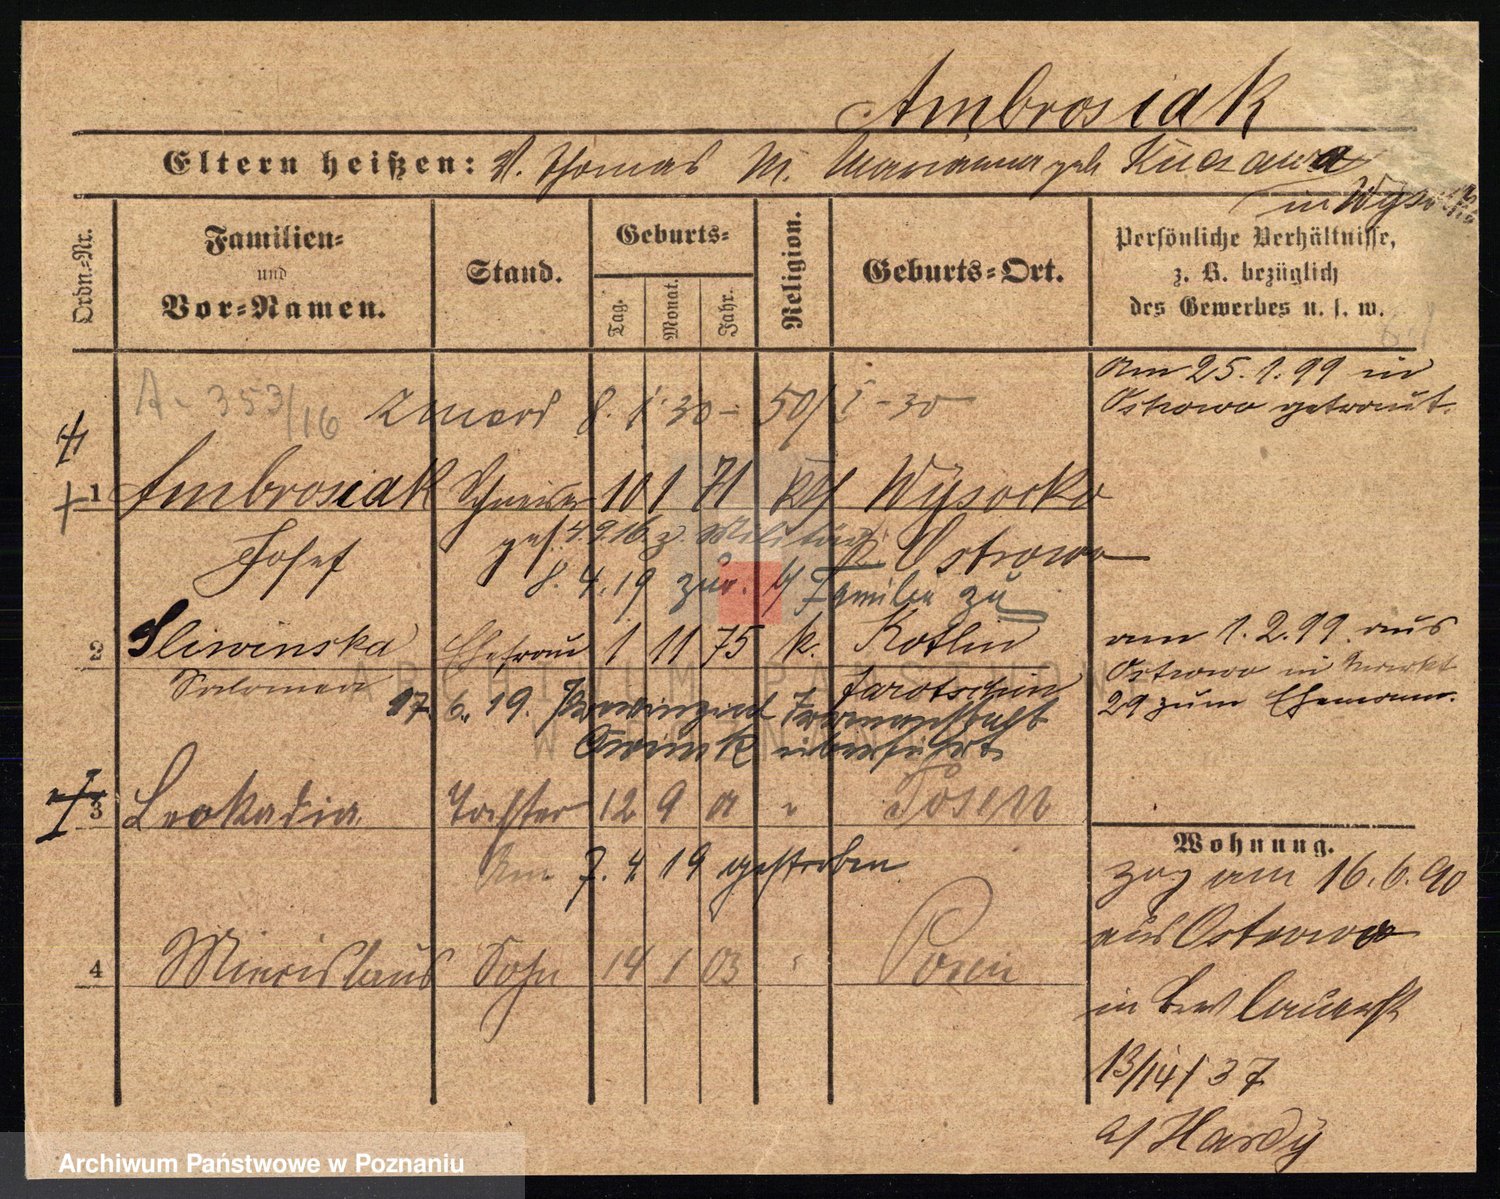 Ambrosiak
Eltern heißen: V. Thomas M. Marianna geb. Kuczawa
in Wysocko
Ordn.-Nr.
Familien-
und
Vor-Namen.
Stand.
Geburts-
Tag.
Monat.
Jahr.
Religion.
Geburts-Ort.
Persönliche Verhältnisse,
z. B. bezüglich
des Gewerbes u. s. w.
Am 25.1.99 in
Ostrowo getraut.
A. 353/16
8. 1. 30 - 50/
1 Ambrosiak Schneider 10 1 71 kth Wysocko
Josef
gest. 4.9.16 z. Militär
Ostrowo
8.4.19 zur. Familie zu
2 Sliwinska Ehefrau 1 11 75 k. Kotlin
Salomea
Jarotschin
am 1.2.99 aus
Ostrowo in Markt
29 zum Ehemann.
17. 6. 19. Provinzial Irrenanstalt
Owinsk überführt
3 Leokadia Tochter 12 9 01 " Posen
Am 7. 4. 19 gestorben
4 Miecislaus Sohn 14 1 03 " Posen
Wohnung.
zog am 16.6.90
aus Ostrowo
in
13/14/37
a/ Hardy
ARCHIWUM PAŃSTWOWE
W POZNANIU
Archiwum Państwowe w Poznaniu